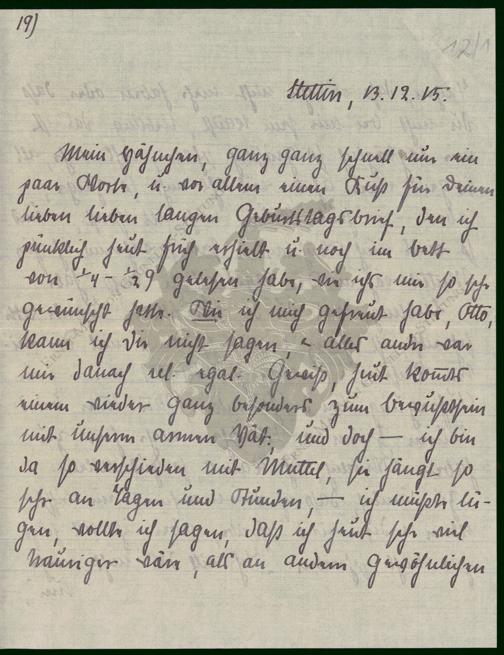 19)
12/1
Stettin, 13.12.15.
Mein Hähnchen, ganz ganz schnell nur ein
paar Worte, u. vor allem einen Kuß für Deinen
lieben lieben langen Geburtstagsbrief, den ich
pünklich heut früh erhielt u. noch im bett
von ¼ - ½ 9 gelesen habe, wie ichs mir so sehr
gewünscht hatte. Wie ich mich gefreut habe, Otto,
kann ich dir nicht sagen, alles andre war
mir danach rel. egal. Gewiß, heut kommts
einem wieder ganz besonders zum bewußtsein
mit unserm armen Vät., und doch — ich bin
da so verschieden mit Muttel, sie hängt so
sehr an Tagen und Stunden, — ich müßte lü-
gen, wollte ich sagen, daß ich heut sehr viel
trauriger wäre, als an andern gewöhnlichen